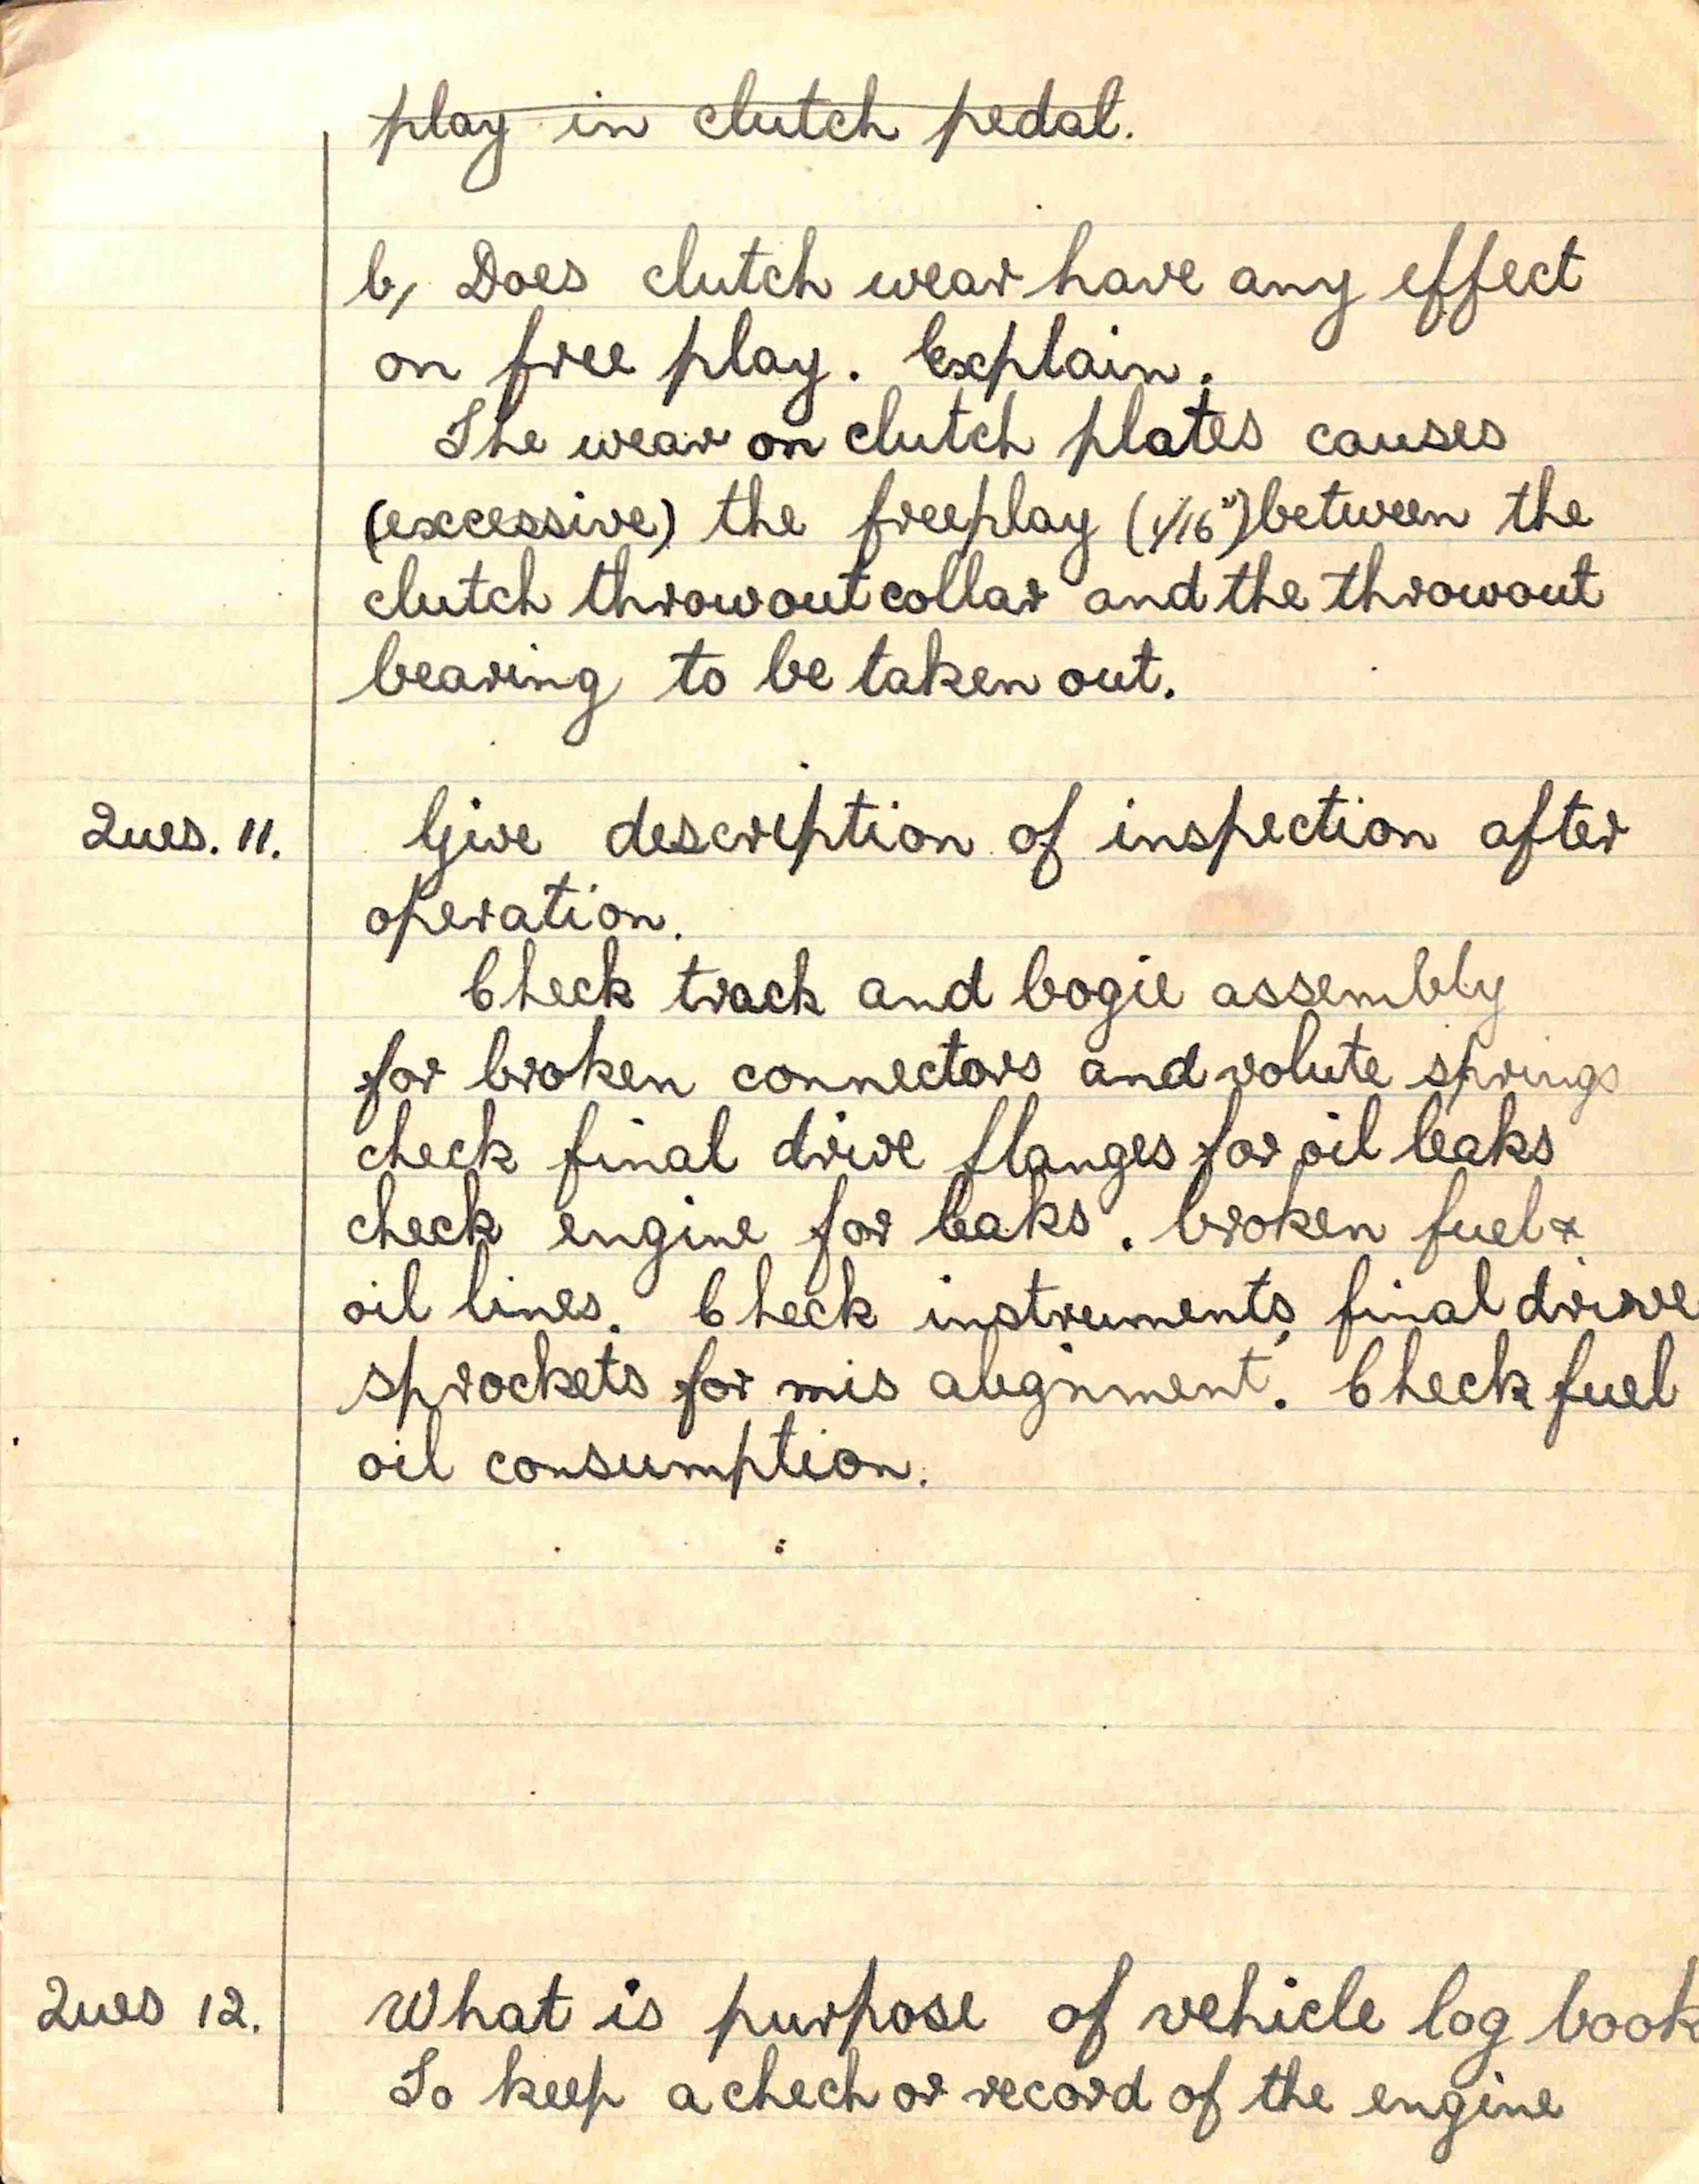 play in clutch pedal.
b, Does clutch wear have any effect
on free play. Explain.
The wear on clutch plates causes
(excessive) the freeplay (1/16") between the
clutch throwout collar and the throwout
bearing to be taken out.
Ques. 11. Give description of inspection after
operation.
Check track and bogie assembly
for broken connectors and volute springs
check final drive flanges for oil leaks
check engine for leaks. broken fuel &
oil lines. Check instruments, final drive
sprockets for mis alignment. Check fuel
oil consumption.
Ques 12. What is purpose of vehicle log book
To keep a chech or record of the engine